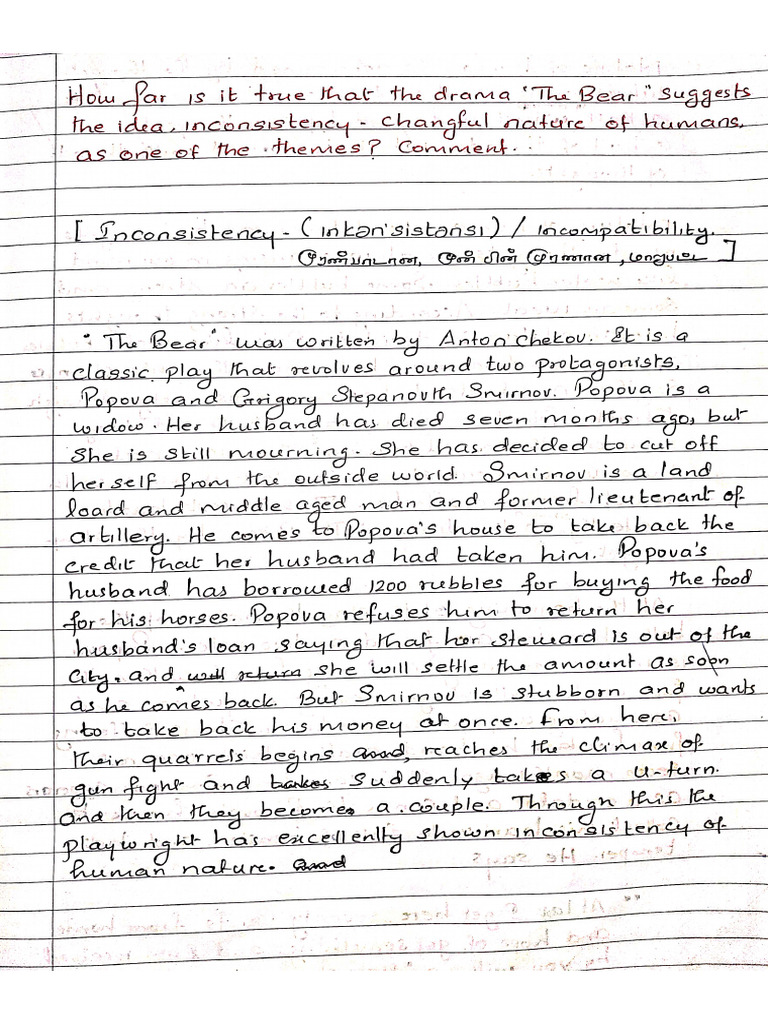 How far is it true that the drama "The Bear" suggests
the idea, inconsistency - changful nature of humans,
as one of the themes? Comment.
[ Inconsistency - (inkən'sistənsi) / incompatibility.
முரண்பாடான, முன் பின் முரணான, மாறுபட்ட ]
"The Bear" was written by Anton chekov. It is a
classic play that revolves around two protagonists,
Popova and Grigory Stepanovith Smirnov. Popova is a
widow. Her husband has died seven months ago, but
she is still mourning. She has decided to cut off
her self from the outside world. Smirnov is a land
loard and middle aged man and former lieutenant of
artillery. He comes to Popova's house to take back the
credit that her husband had taken him. Popova's
husband has borrowed 1200 rubbles for buying the food
for his horses. Popova refuses him to return her
husband's loan saying that her steward is out of the
city. and will return she will settle the amount as soon
as he comes back. But Smirnov is stubborn and wants
to take back his money at once. From here,
their quarrels begins and, reaches the climax of
gun fight and takes suddenly takes a u-turn.
And then they becomes a couple. Through this the
playwright has excellenlty shown inconsistency of
human nature. and